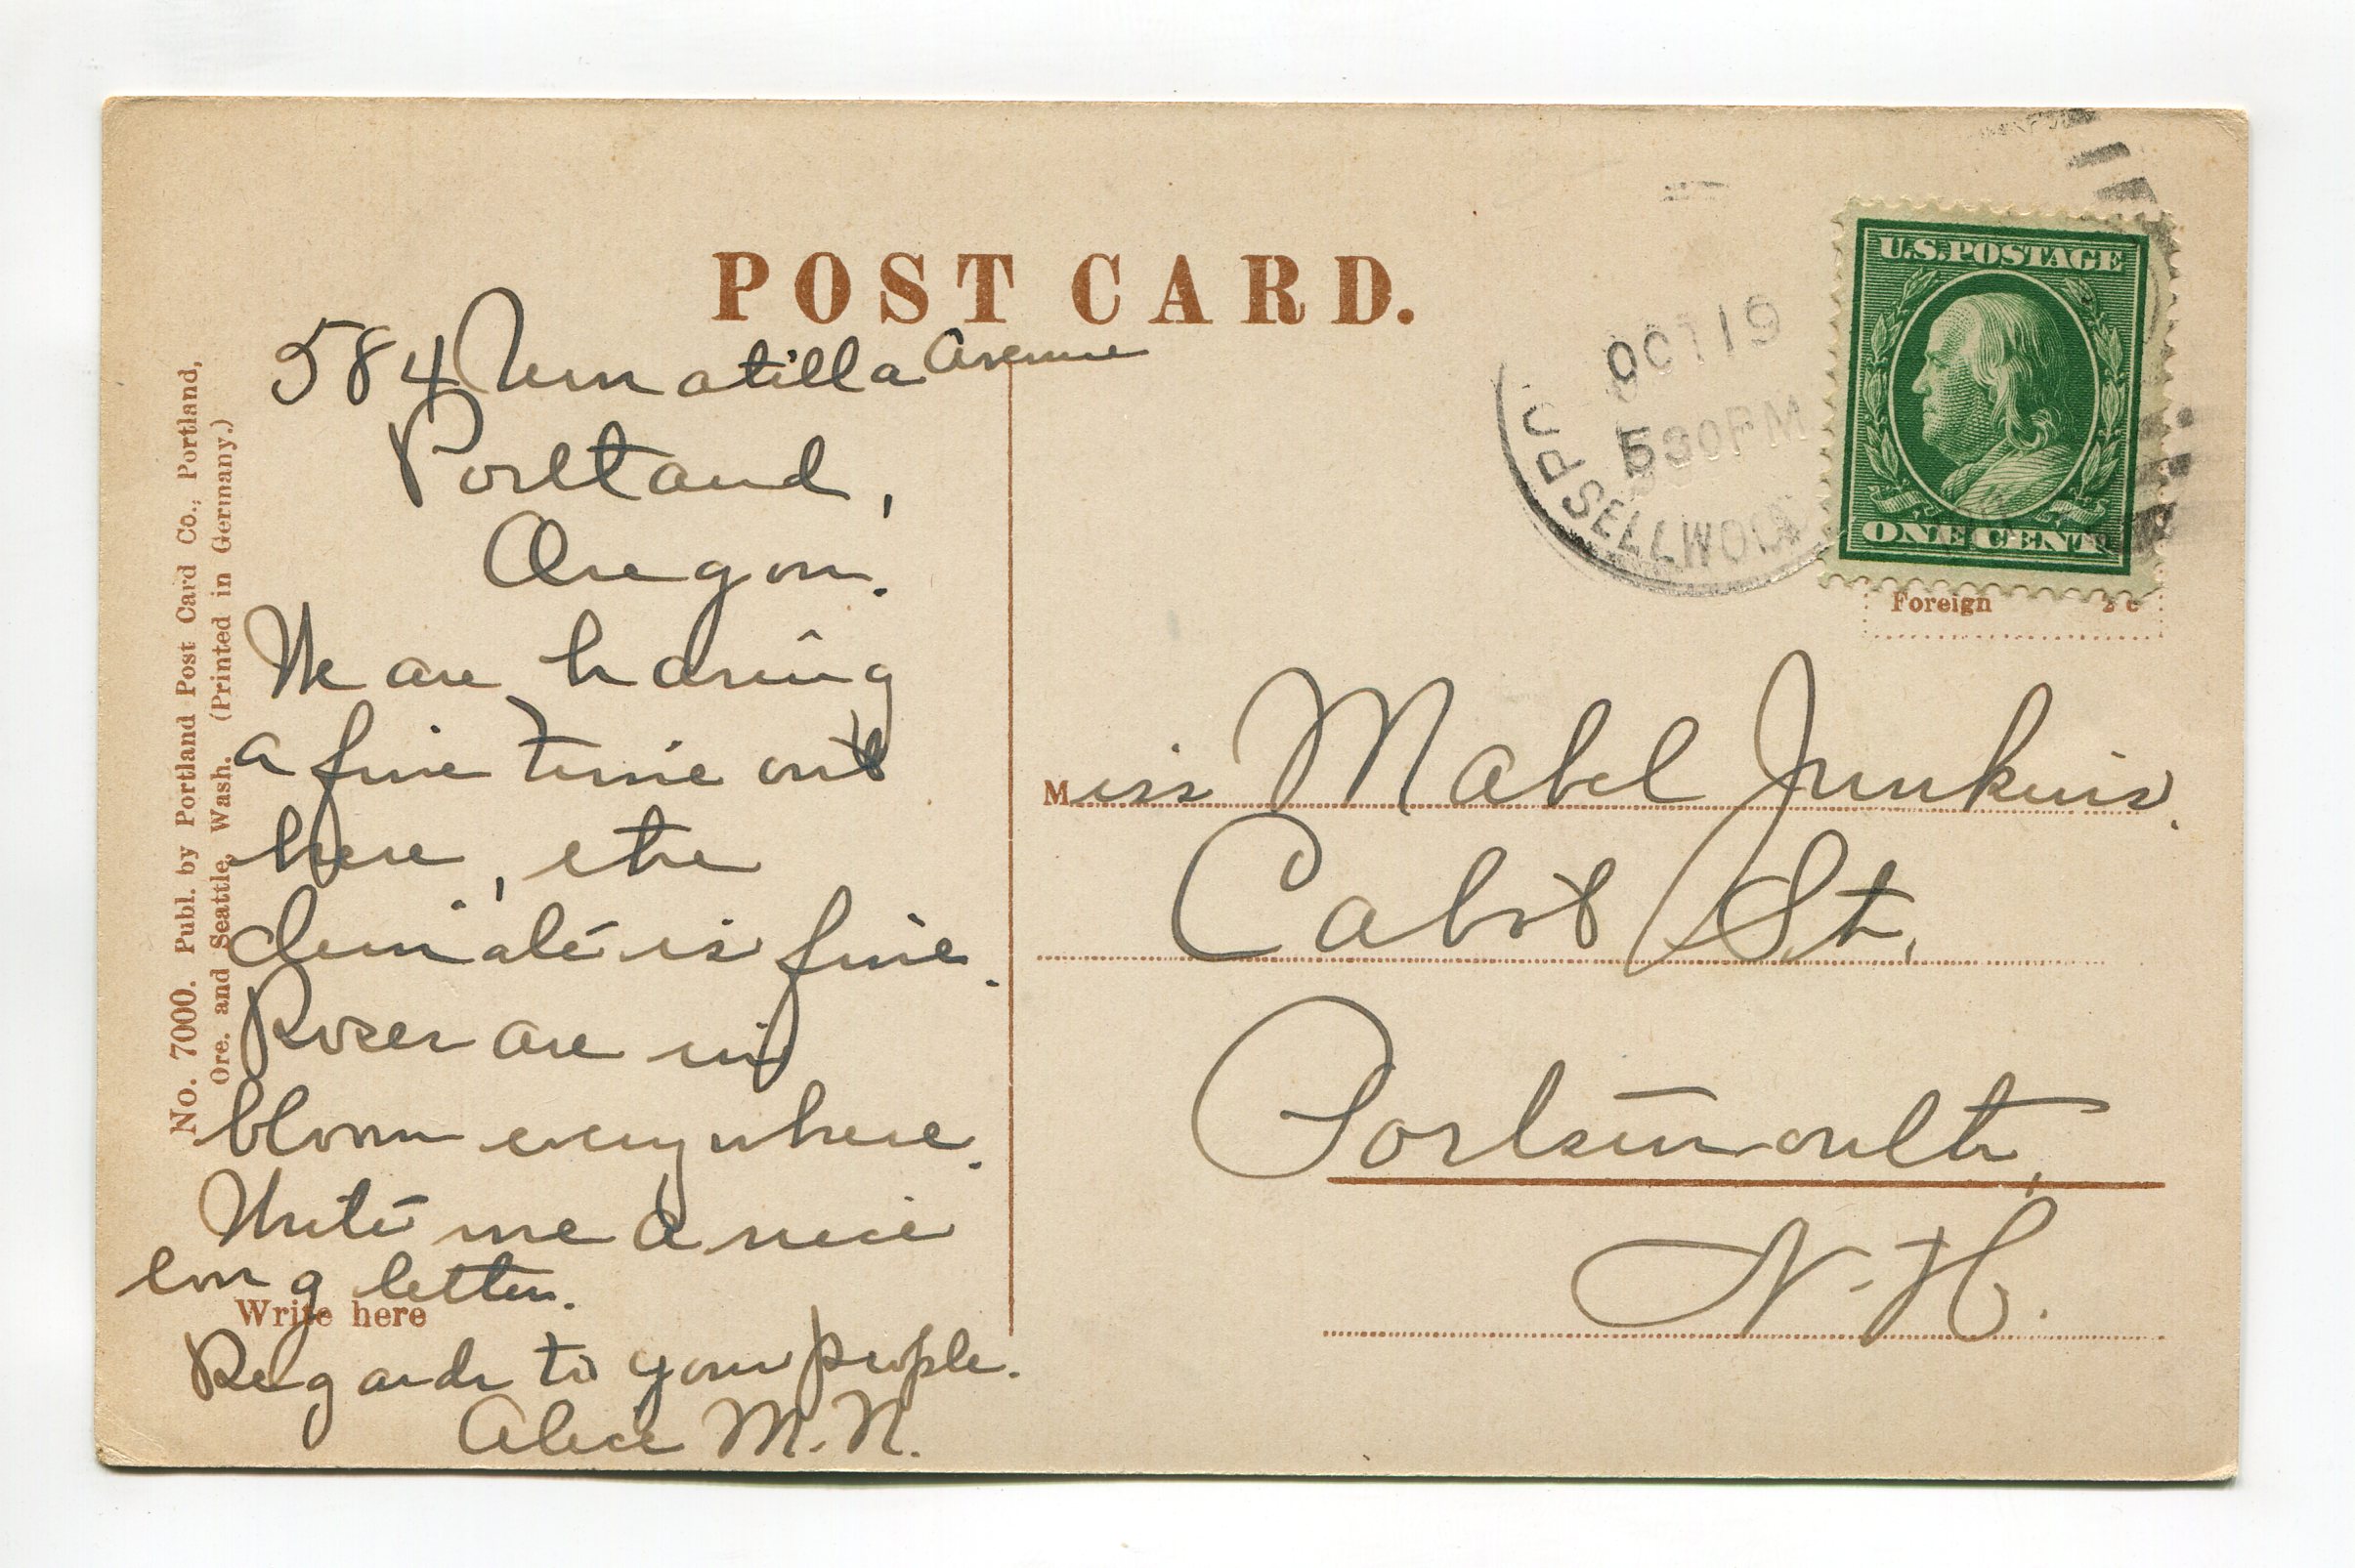 POST CARD.
584 Umatilla Avenue
Portland,
Oregon.
We are having
a fine time out
here, the
climate is fine.
Roses are in
bloom everywhere.
Write me a nice
long letter.
Write here
Regards to your people.
Alice M. N.
No. 7000. Publ. by Portland Post Card Co., Portland,
Ore. and Seattle, Wash. (Printed in Germany.)
OCT 19
530PM
SELLWOOD
U.S. POSTAGE
ONE CENT
Foreign 2 c
Miss Mabel Junkins.
Cabot St.
Portsmouth,
N. H.